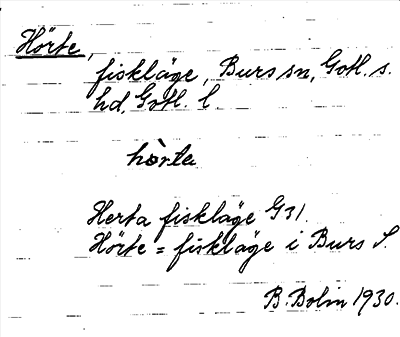 Hörte,
fiskläge, Burs sn, Gotl. s.
hd, Gotl. l.
hòrta
Herta fiskläge G31.
Hörte = fiskläge i Burs S.
B. Bolin 1930.